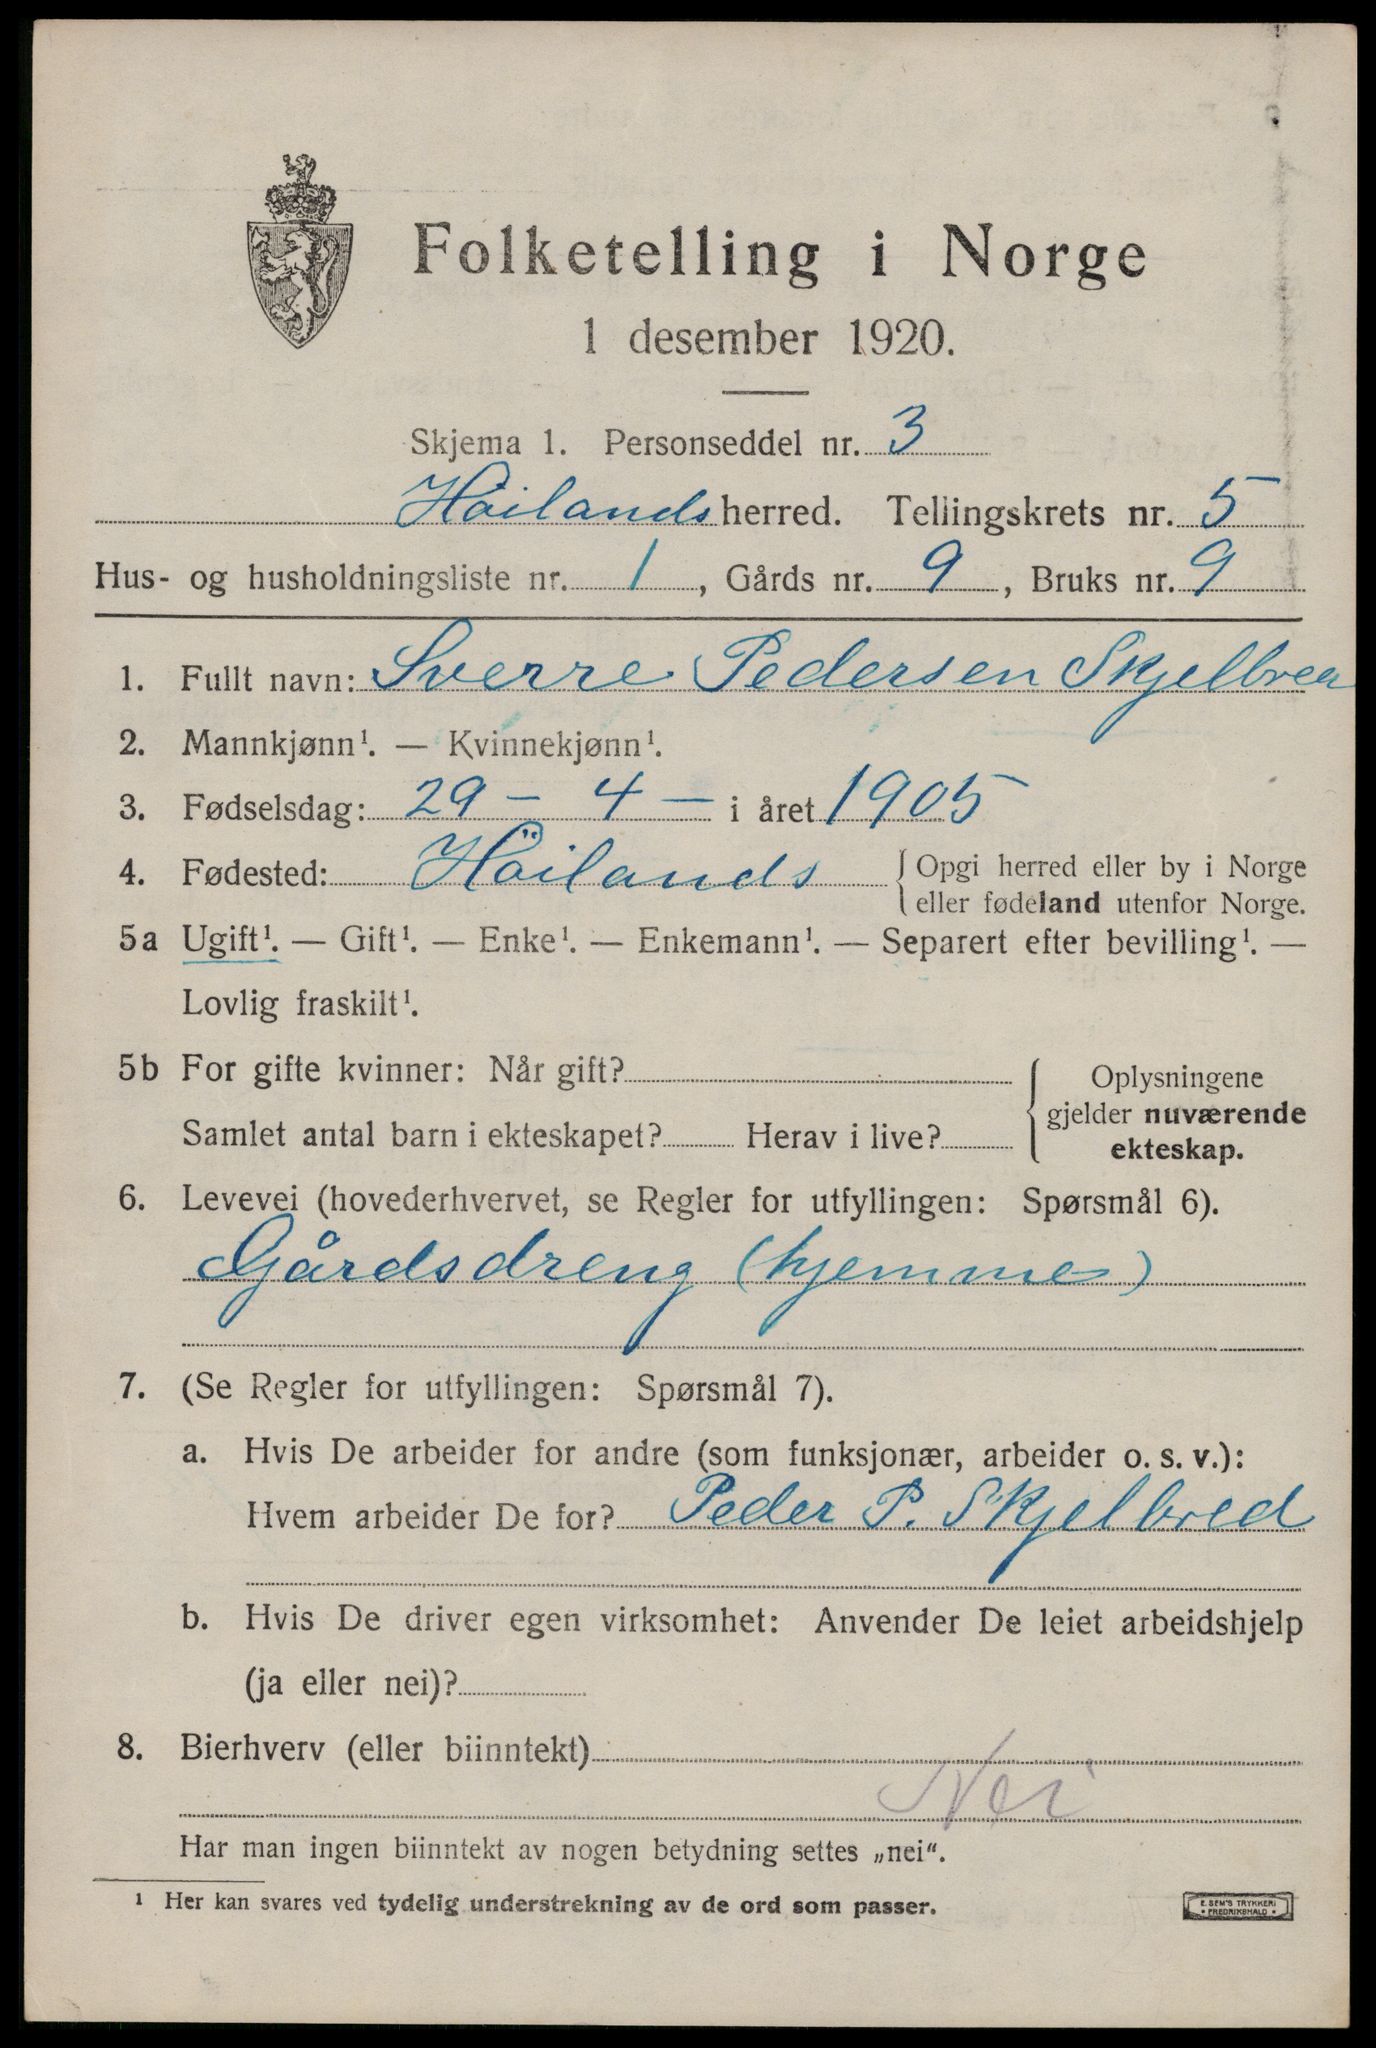 Folketelling i Norge
1 desember 1920.
Skjema 1. Personseddel nr. 3
Höilands herred. Tellingskrets nr. 5
Hus- og husholdningsliste nr. 1, Gårds nr. 9, Bruks nr. 9
1. Fullt navn: Sverre Pedersen Skjelbred
2. Mannkjønn¹. — Kvinnekjønn¹.
3. Fødselsdag: 29 - 4 - i året 1905
4. Fødested: Höilands { Opgi herred eller by i Norge
eller fødeland utenfor Norge.
5a Ugift¹. — Gift¹. — Enke¹. — Enkemann¹. — Separert efter bevilling¹. —
Lovlig fraskilt¹.
5b For gifte kvinner: Når gift?
Samlet antal barn i ekteskapet? Herav i live?
Oplysningene
gjelder nuværende
ekteskap.
6. Levevei (hovederhvervet, se Regler for utfyllingen: Spørsmål 6).
Gårdsdreng (hjemme)
7. (Se Regler for utfyllingen: Spørsmål 7).
a. Hvis De arbeider for andre (som funksjonær, arbeider o. s. v.):
Hvem arbeider De for? Peder P. Skjelbred
b. Hvis De driver egen virksomhet: Anvender De leiet arbeidshjelp
(ja eller nei)?
8. Bierhverv (eller biinntekt)
Nei
Har man ingen biinntekt av nogen betydning settes „nei“.
¹ Her kan svares ved tydelig understrekning av de ord som passer.
E. SEM'S TRYKKERI
• FREDRIKSHALD •